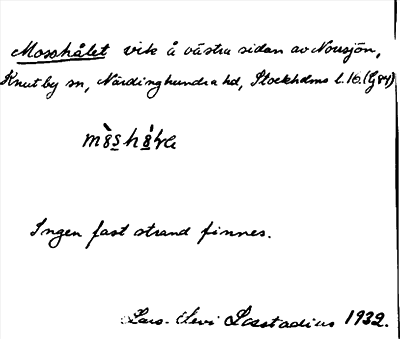 Mosshålet vik å västra sidan av Norsjön,
Knutby sn, Närdinghundra hd, Stockholms l. 16. (G 84)
Ingen fast strand finnes.
Lars-Levi Læstadius 1932.